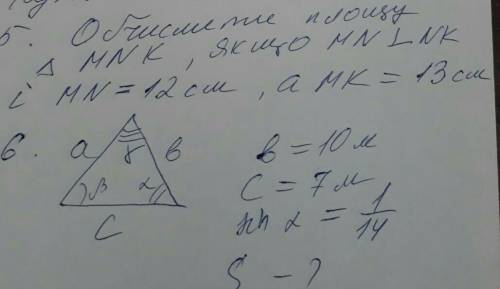 5. Обчислете площу
△ MNK, якщо MN⊥NK
і MN = 12 см, а MK = 13 см
6. a γ в в = 10 м
β α c = 7 м
C sin α = 1/14
S - ?